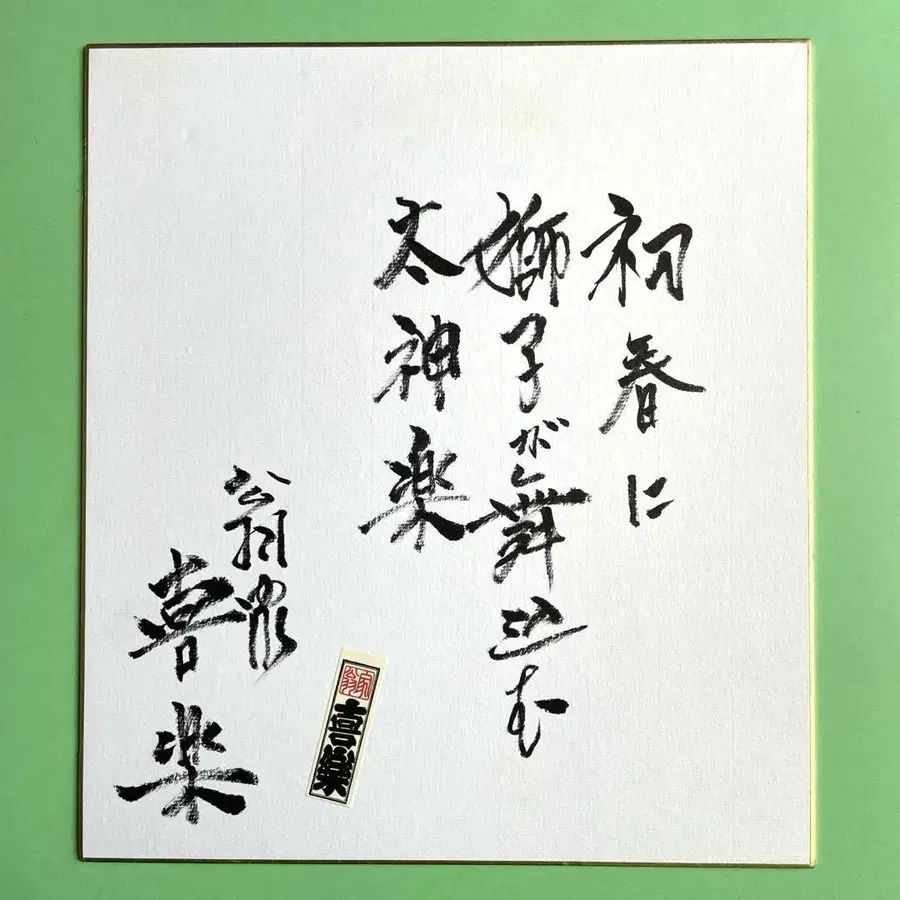 初春に
獅子が舞込む
太神楽
翁家
喜楽
翁家
喜楽